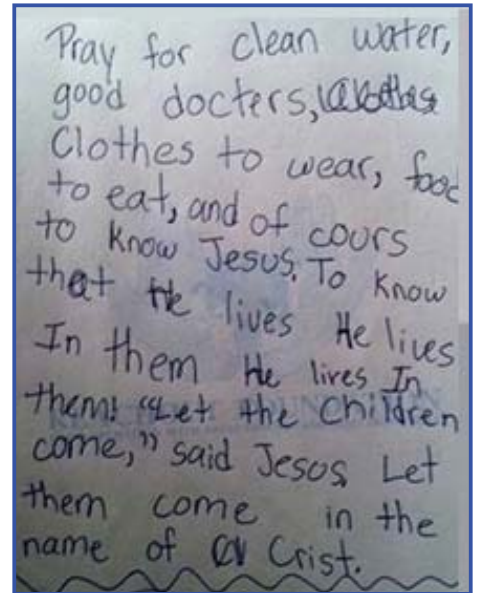 Pray for clean water,
good docters,
Clothes to wear, food
to eat, and of cours
to know Jesus. To know
that He lives He lives
In them He lives In
them! "Let the Children
come," said Jesus Let
them come in the
name of Crist.